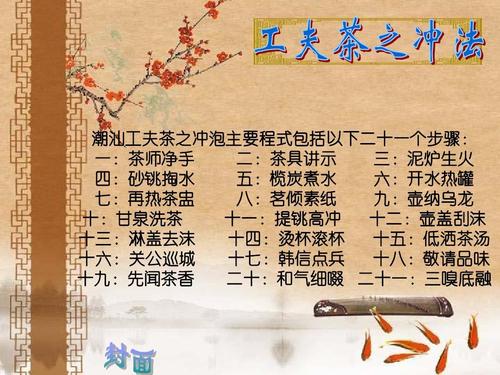 工夫茶之冲法
潮汕工夫茶之冲泡主要程式包括以下二十一个步骤：
一：茶师净手 二：茶具讲示 三：泥炉生火
四：砂铫掏水 五：榄炭煮水 六：开水热罐
七：再热茶盅 八：茗倾素纸 九：壶纳乌龙
十：甘泉洗茶 十一：提铫高冲 十二：壶盖刮沫
十三：淋盖去沫 十四：烫杯滚杯 十五：低洒茶汤
十六：关公巡城 十七：韩信点兵 十八：敬请品味
十九：先闻茶香 二十：和气细啜 二十一：三嗅底融
封面